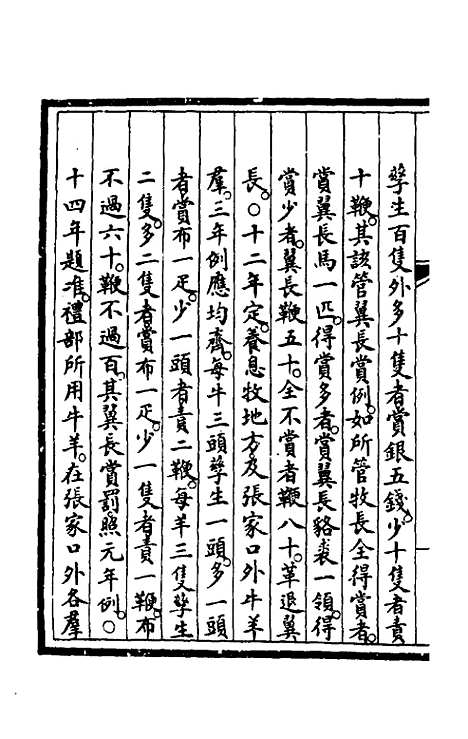 孳生百隻外多十隻者賞銀五錢。少十隻者責
十鞭。其該管翼長賞例。如所管牧長全得賞者。
賞翼長馬一匹。得賞多者。賞翼長貉裘一領。得
賞少者。翼長鞭五十。全不賞者鞭八十。革退翼
長。○十二年定。養息牧地方及張家口外牛羊
羣。三年例應均齊。每牛三頭孳生一頭。多一頭
者賞布一疋。少一頭者責二鞭。每羊三隻孳生
二隻。多二隻者賞布一疋。少一隻者責一鞭。布
不過六十。鞭不過百。其翼長賞罰。照元年例。○
十四年題准。禮部所用牛羊。在張家口外各羣